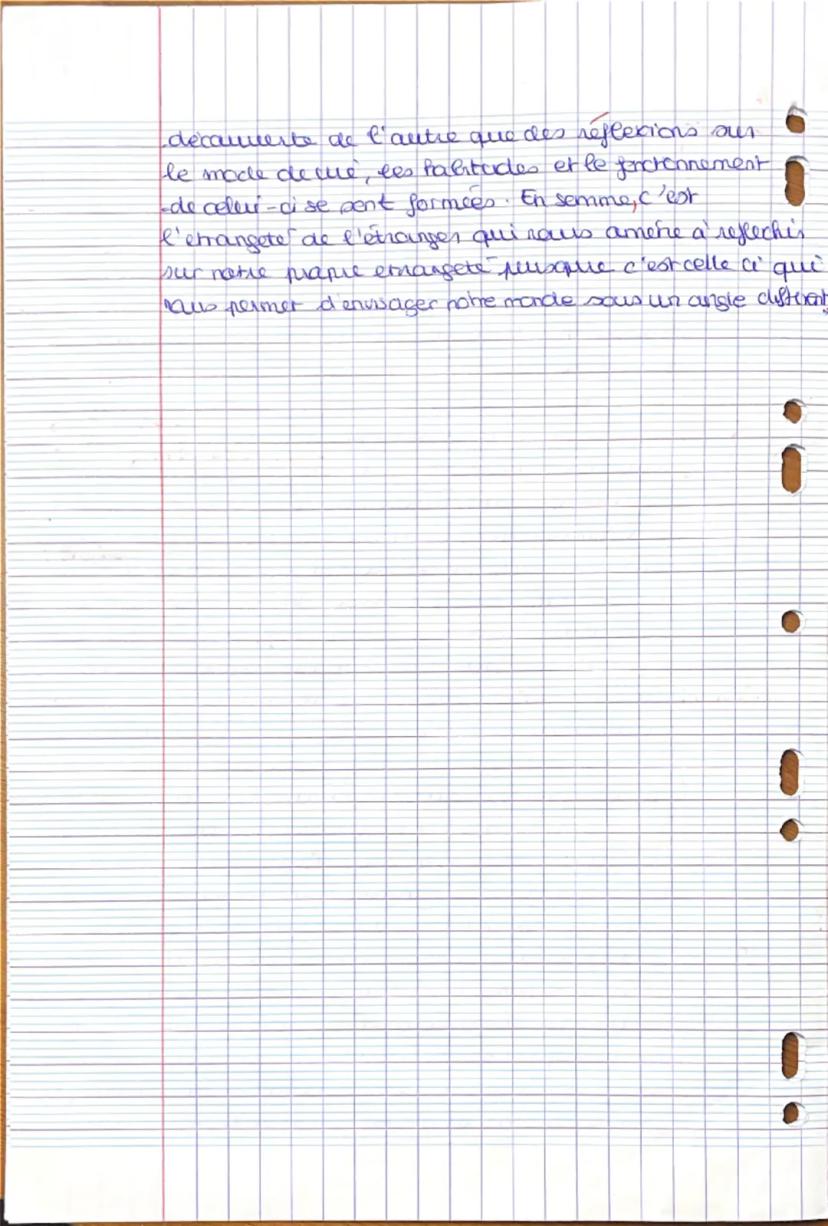 découverte de l'autre que des réflexions sur
le mode de vie, les habitudes et le fonctionnement
de celui-ci se sont formées. En somme, c'est
l'etrangeté de l'étranger qui nous amène à reflechir
sur notre propre etrangeté puisque c'est celle ci qui
nous permet d'envisager notre monde sous un angle différent.